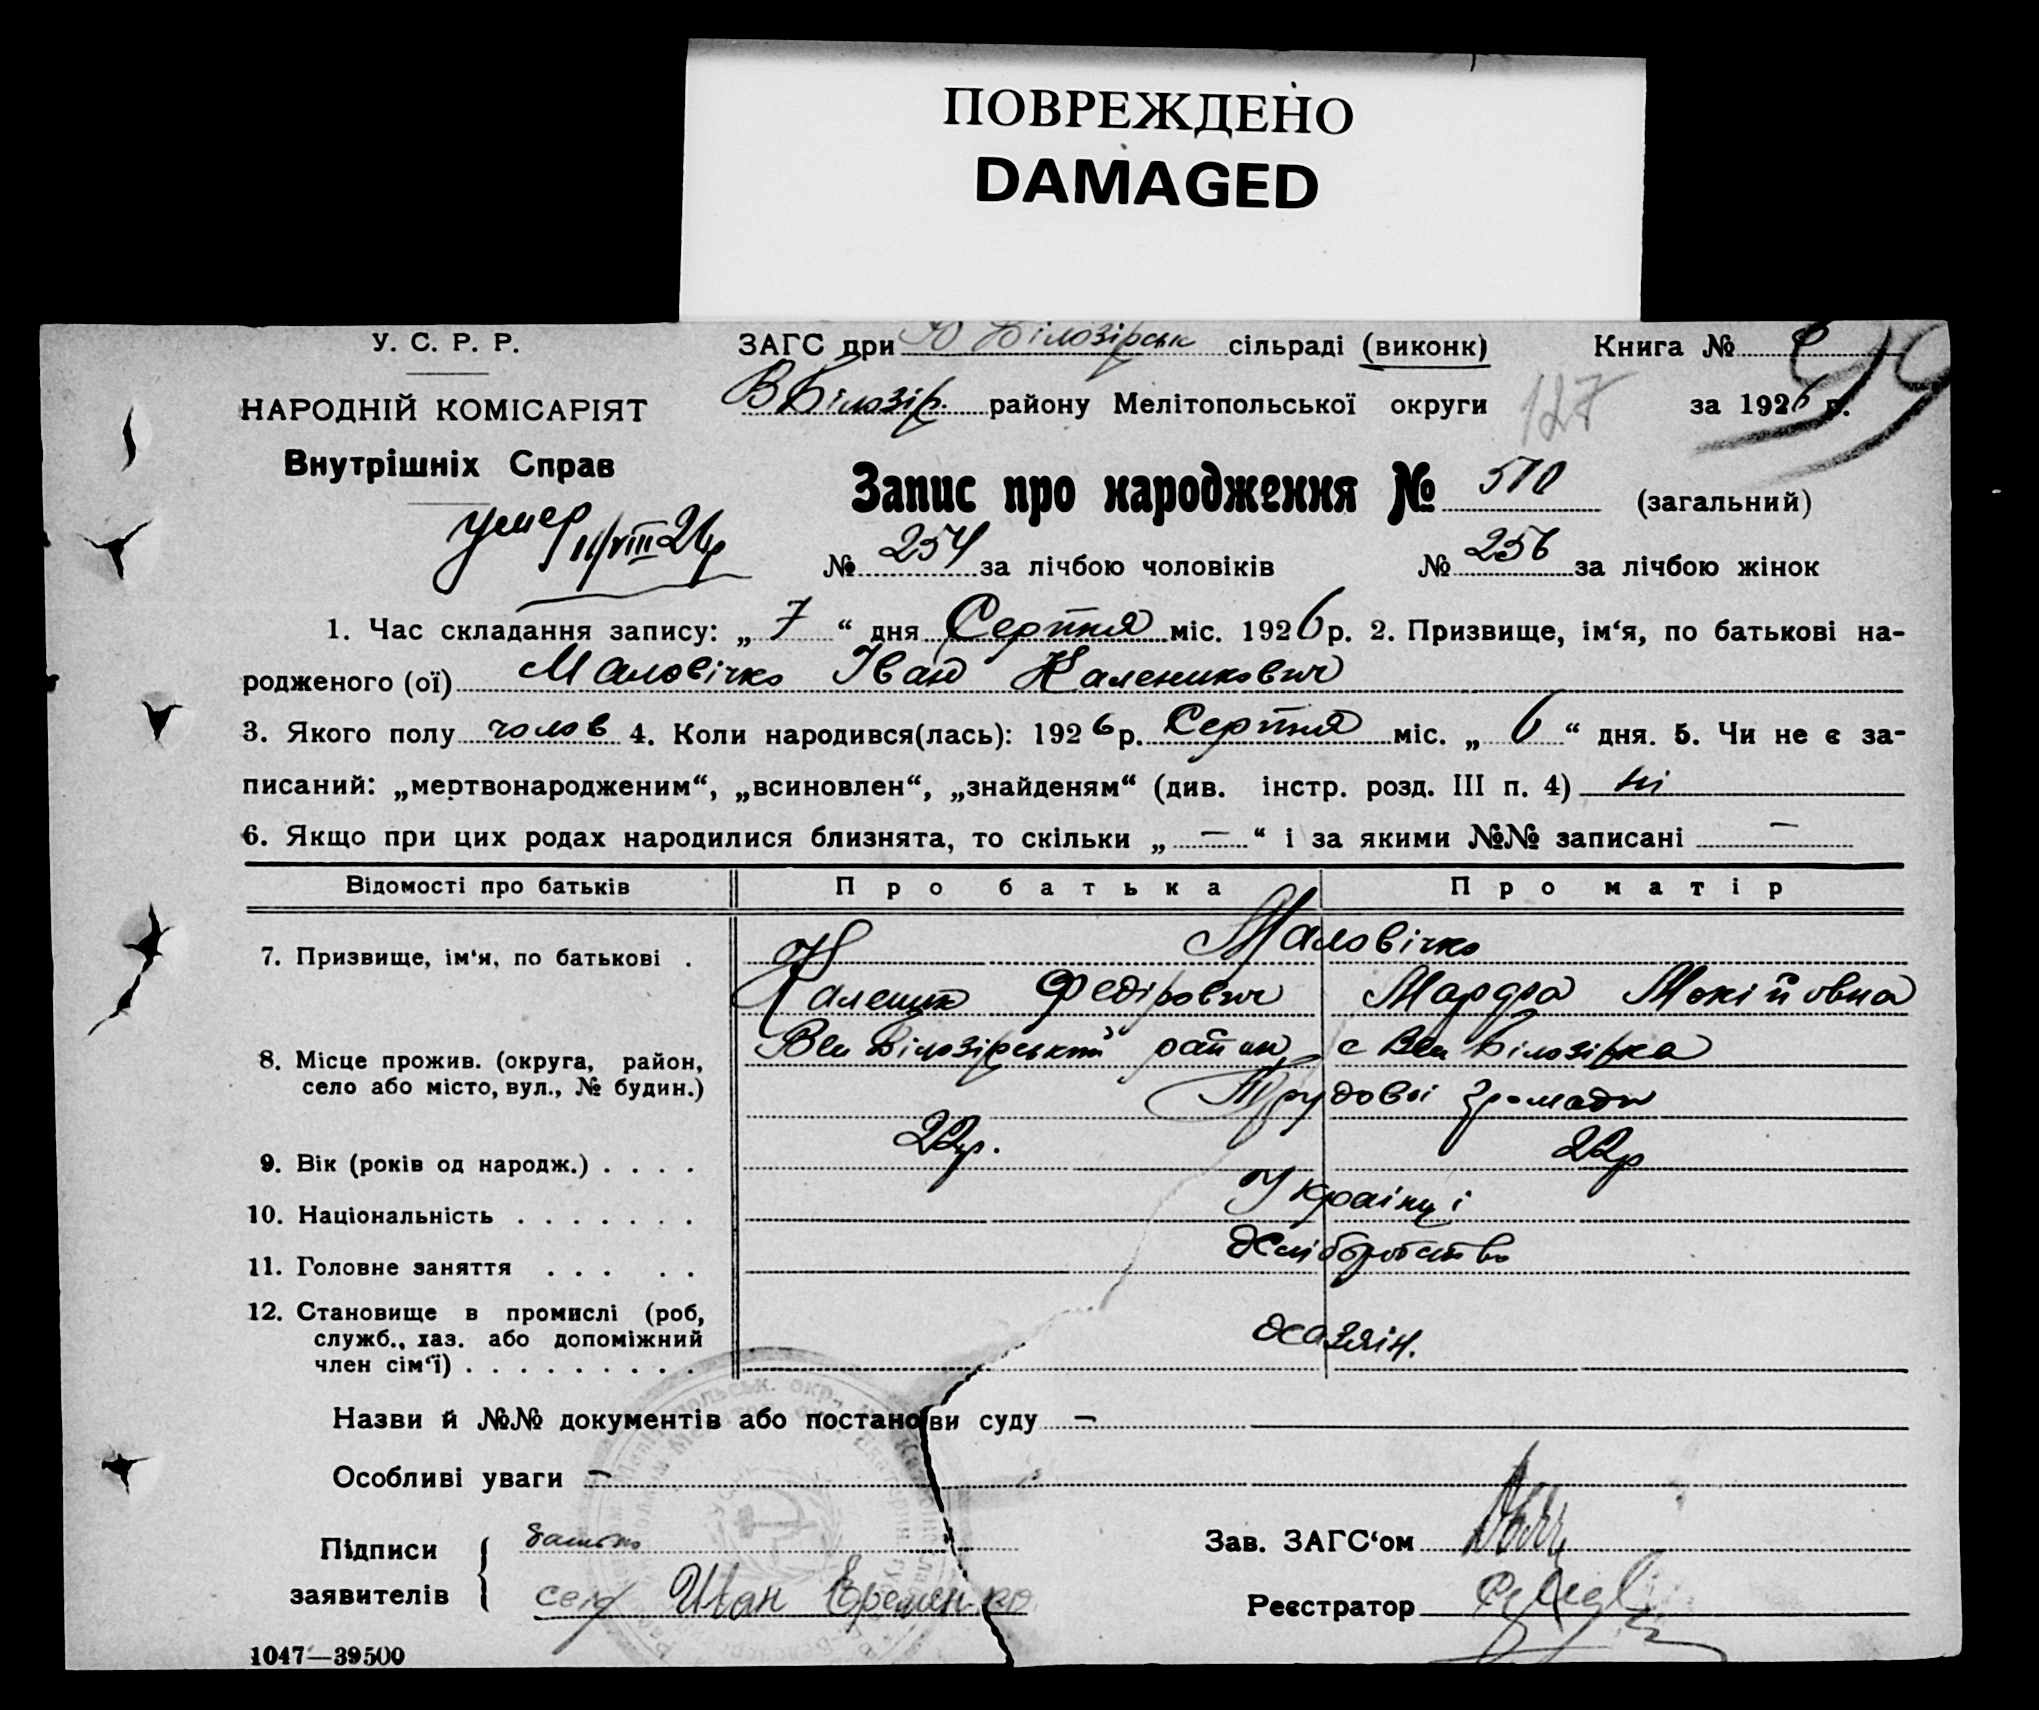 ПОВРЕЖДЕНО
DAMAGED
У. С. Р. Р.
ЗАГС при Ю Білозірськ сільраді (виконк)
Книга №
НАРОДНІЙ КОМІСАРІЯТ
В Білозір. району Мелітопольської округи
127
за 1926 р.
99
Внутрішніх Справ
Запис про народження № 510 (загальний)
умер 11/VIII 26р
№ 254 за лічбою чоловіків № 256 за лічбою жінок
1. Час складання запису: „ 7 “ дня Серпня міс. 1926 р. 2. Призвище, ім‘я, по батькові на-
родженого (ої) Маловічко Іван Каленикович
3. Якого полу чолов 4. Коли народився(лась): 1926 р. Серпня міс. „ 6 “ дня. 5. Чи не є за-
писаний: „мертвонародженим“, „всиновлен“, „знайденям“ (див. інстр. розд. III п. 4) ні
6. Якщо при цих родах народилися близнята, то скільки „ — “ і за якими №№ записані —
Відомості про батьків Про батька Про матір
7. Призвище, ім‘я, по батькові . Маловічко
Каленик Федірович Марфа Мокійовна
8. Місце прожив. (округа, район, село або місто, вул., № будин.) Вел Білозірський район, с Вел Білозірка
Трудової громади
9. Вік (років од народж.) . . . . 22р. 22р
10. Національність . . . . . . . Українці
11. Головне заняття . . . . . Хліборобство
12. Становище в промислі (роб, служб., хаз. або допоміжний член сім‘ї) . . . . . . . . . хазяін.
Назви й №№ документів або постанови суду —
Особливі уваги —
Підписи заявителів
батько
Иван Еременко
Зав. ЗАГС‘ом
Реєстратор
1047—39500